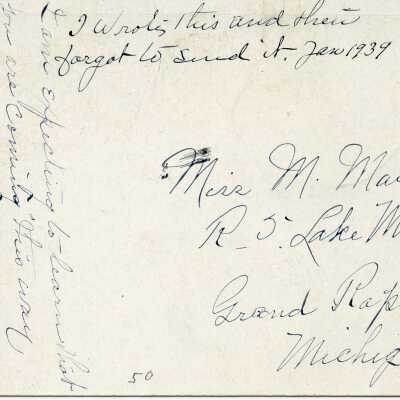 I wrote this and then
forgot to send it. Jan 1939
I am expecting to learn that
you are coming this way
Miss M. Ma
R. 5. Lake M
Grand Rap
Michig
50